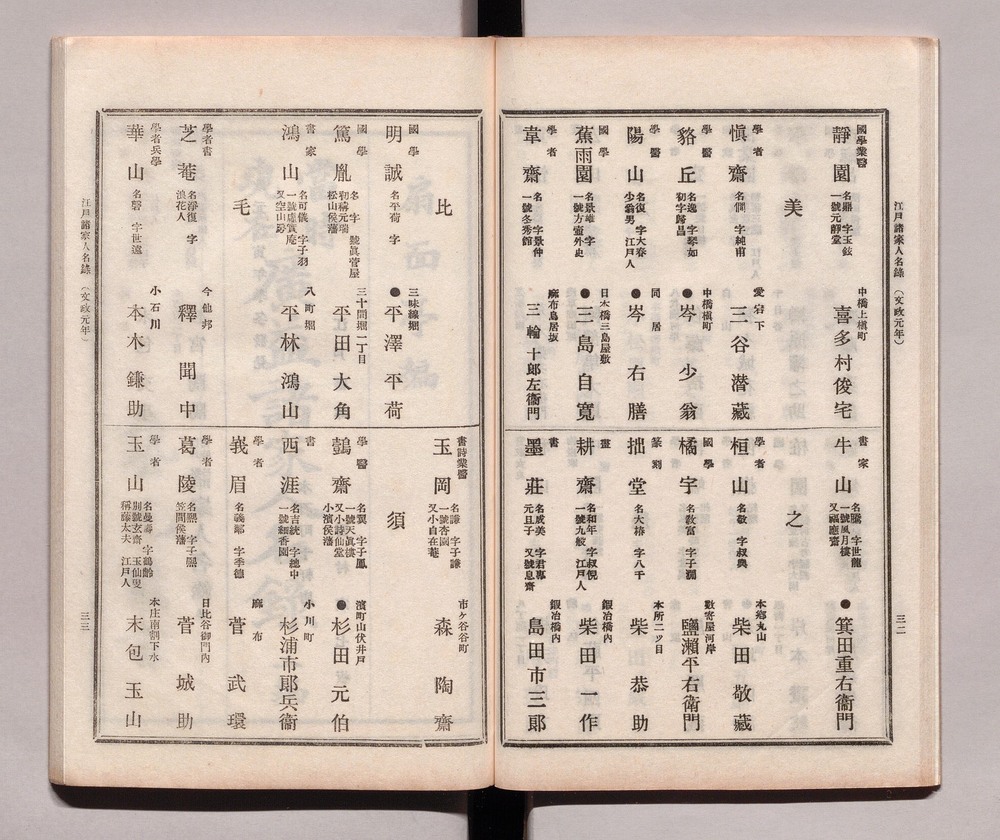 江戸諸家人名錄（文政元年）
三二
國學業醫
靜園
名鼎 字玉鉉
一號元靜堂
中橋上槇町
喜多村俊宅
美
學者
愼齋
名僩 字純甫
愛宕下
三谷潜藏
學醫
貉丘
名逸 字琴如
初字歸昌
中橋槇町
●岑少翁
學醫
陽山
名復 字大春
少翁男 江戸人
同居
●岑右膳
國學
蕉雨園
名景雄 字
一號方壺外史
日本橋三島屋敷
●三島自寬
學者
韋齋
名 字景仲
一號冬秀館
麻布鳥居坂
三輪十郎左衞門
書家
牛山
名騰 字世龍
一號風月樓
又福應齋
●箕田重右衞門
之
學者
桓山
名敬 字叔輿
本鄕丸山
柴田敬藏
國學
橘宇
名敎富 字子瀾
數寄屋河岸
鹽瀨平右衞門
篆刻
拙堂
名大椿 字八千
本所二ツ目
柴恭助
畫
耕齋
名和年 字叔悅
一號九皎 江戸人
鍛冶橋內
柴田平一作
書
墨莊
名成美 字君專
元旦子 又號息齋
鍛冶橋內
島田市三郎
比
國學
明誠
名平荷 字
三味線堀
●平澤平荷
國學
篤胤
名 字 號眞菅屋
初稱元瑞
松山侯藩
三十間堀一丁目
平田大角
書家
鴻山
名可儀 字子羽
一號虛實庵
八町堀
平林鴻山
毛
學者書
芝菴
名淨復 字
浪花人
今他邦
釋聞中
學者兵學
華山
名謦 字世遠
小石川
本木鎌助
書詩業醫
玉岡
名謙 字子謙
一號杏園
又小自在菴
市ケ谷谷町
森陶齋
須
學醫
鷧齋
名翼 字子鳳
一號天眞樓
又小詩仙堂
小濱侯藩
濱町山伏井戸
●杉田元伯
書
西涯
名吉統 字總中
一號細香園
小川町
杉浦市郎兵衞
學者
峩眉
名義鄰 字季德
麻布
菅武環
學者
葛陵
名熙 字子熙
笠間侯藩
日比谷御門內
菅城助
學者
玉山
名曼壽 字鶴齡
別號玄齋 玉仙叟
稱藤太夫 江戸人
本庄南割下水
末包玉山
江戸諸家人名錄（文政元年）
三三